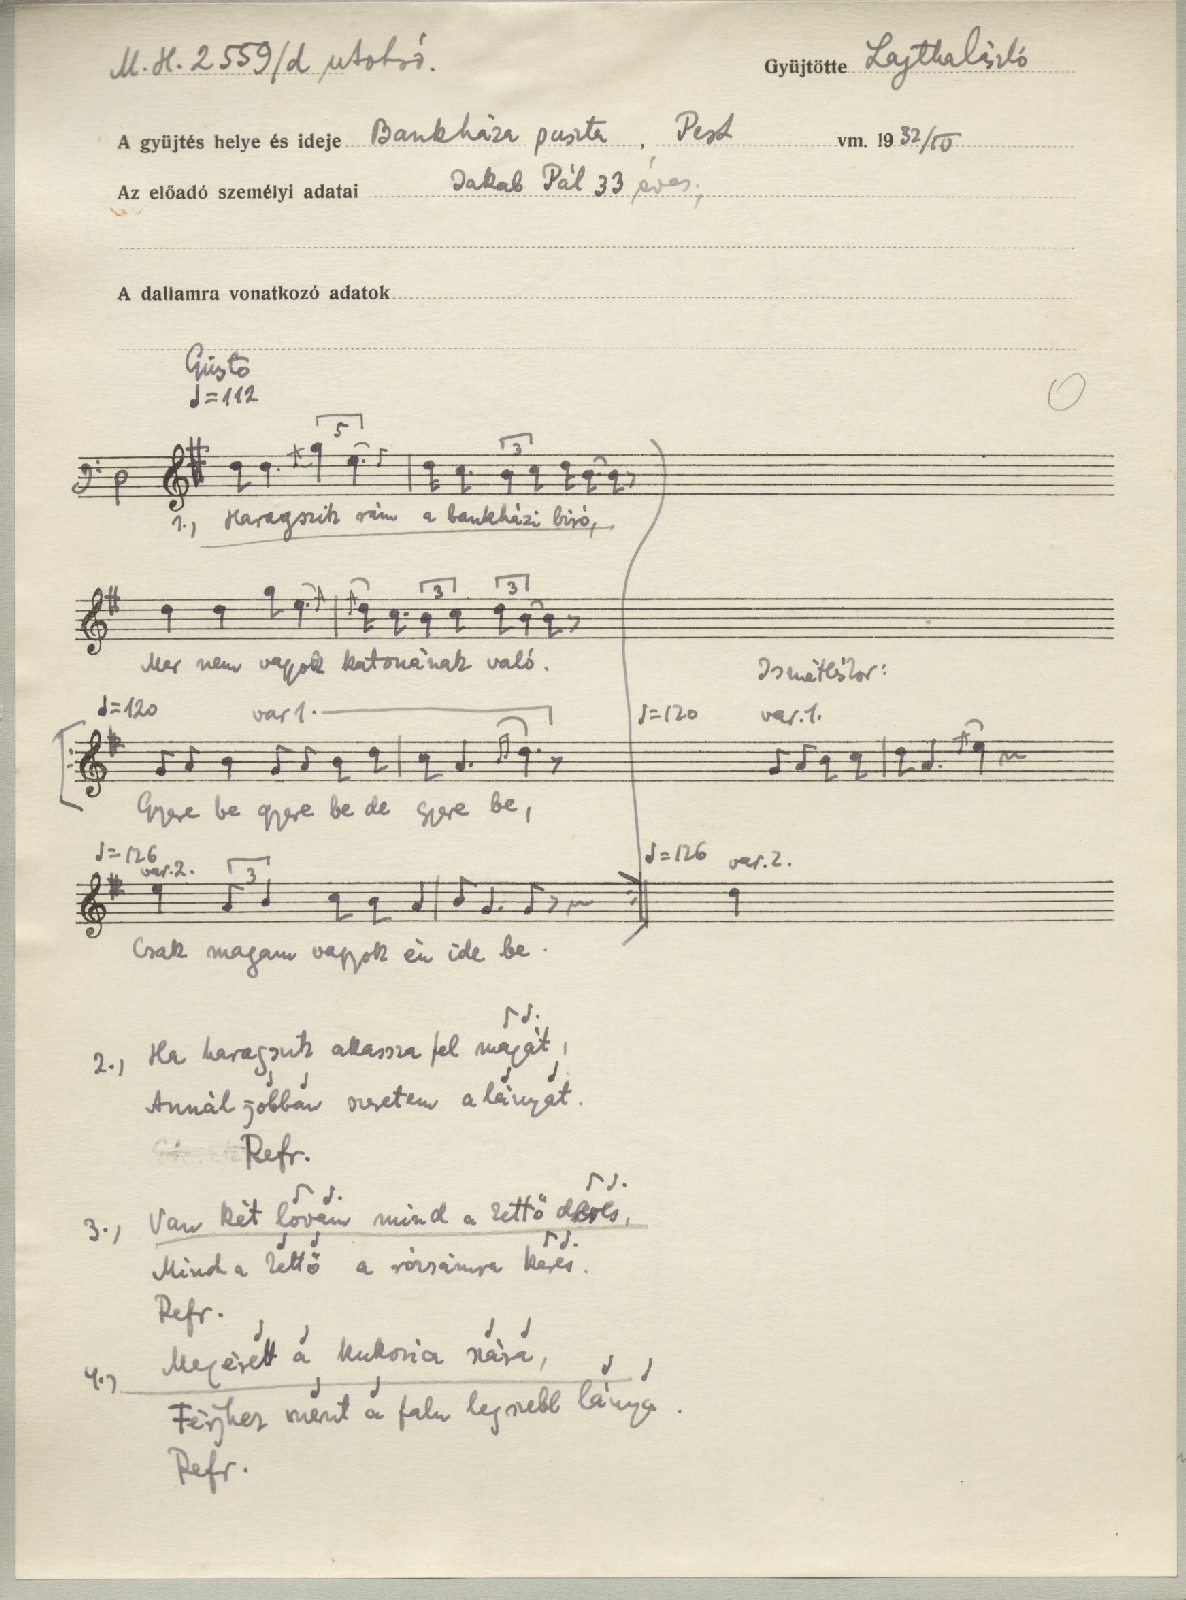 M.H. 2559/d utolsó.
Gyüjtötte Lajtha László
A gyüjtés helye és ideje Bankháza puszta, Pest vm. 1932/IV
Az előadó személyi adatai Jakab Pál 33 éves,
A dallamra vonatkozó adatok
Giusto
♩=112
5 3
1., Haragszik rám a bankházi biró,
3 3
Mer nem vagyok katonának való.
Ismétléskor:
♩=120 var 1. ♩=120 var. 1.
Gyere be gyere be de gyere be,
♩=126 var. 2. 3 ♩=126 var. 2.
Csak magam vagyok én ide be.
2., Ha haragszik akassza fel magát,
Annál jobban szeretem a lányát.
Refr.
3., Van két lovam mind a kettő
Mind a kettő a rózsámra kéres.
Refr.
4., Megérett a kukorica szára,
Férjhez ment a falu legszebb lánya.
Refr.